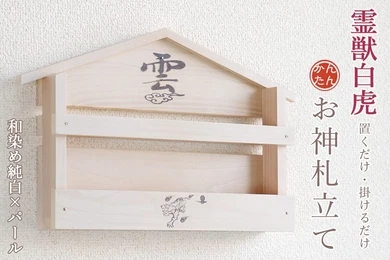 霊獣白虎
かんたん
置くだけ・掛けるだけ
お神札立て
雲
和染め純白×パール